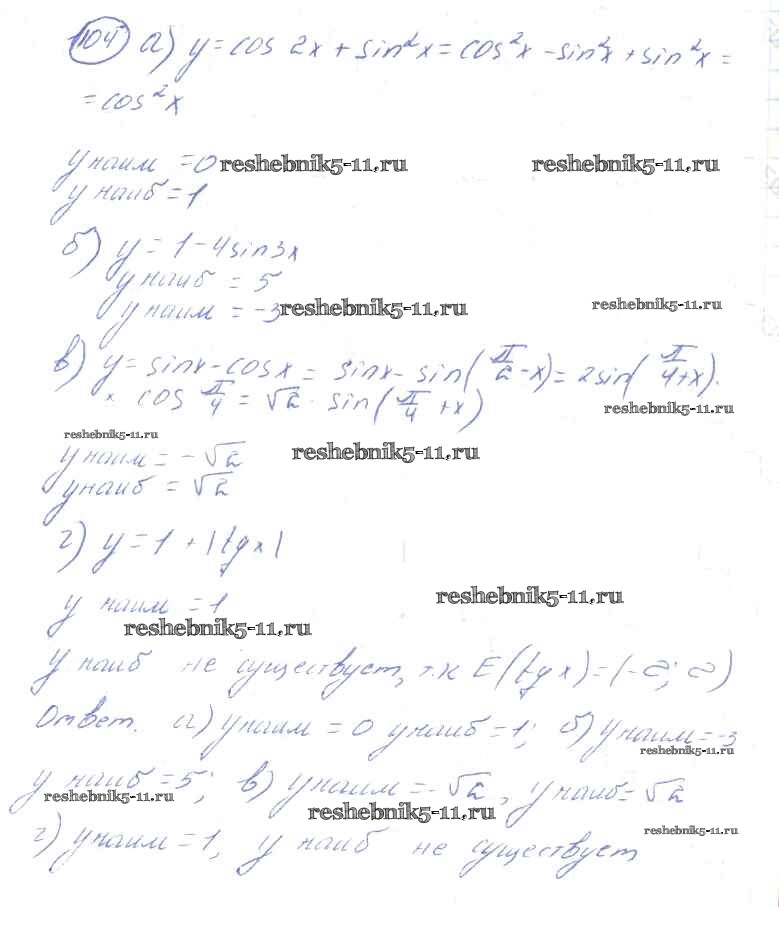 104 а) y = cos 2x + sin²x = cos²x - sin²x + sin²x =
= cos²x
y наим = 0 reshebnik5-11.ru reshebnik5-11.ru
y наиб = 1
б) y = 1 - 4sin3x
y наиб = 5
y наим = -3 reshebnik5-11.ru reshebnik5-11.ru
в) y = sinx - cosx = sinx - sin(π/2 - x) = 2sin(π/4 + x)·
× cos π/4 = √2 · sin(π/4 + x)
reshebnik5-11.ru
reshebnik5-11.ru
y наим = -√2 reshebnik5-11.ru
y наиб = √2
г) y = 1 + |tgx|
y наим = 1 reshebnik5-11.ru
reshebnik5-11.ru
y наиб не существует, т.к E(tgx) = (-∞; ∞)
Ответ. а) y наим = 0 y наиб = 1; б) y наим = -3
reshebnik5-11.ru
y наиб = 5; в) y наим = -√2, y наиб = √2
reshebnik5-11.ru reshebnik5-11.ru
г) y наим = 1, y наиб не существует
reshebnik5-11.ru